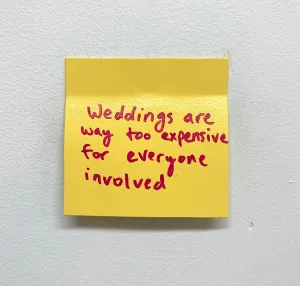 Weddings are
way too expensive
for everyone
involved